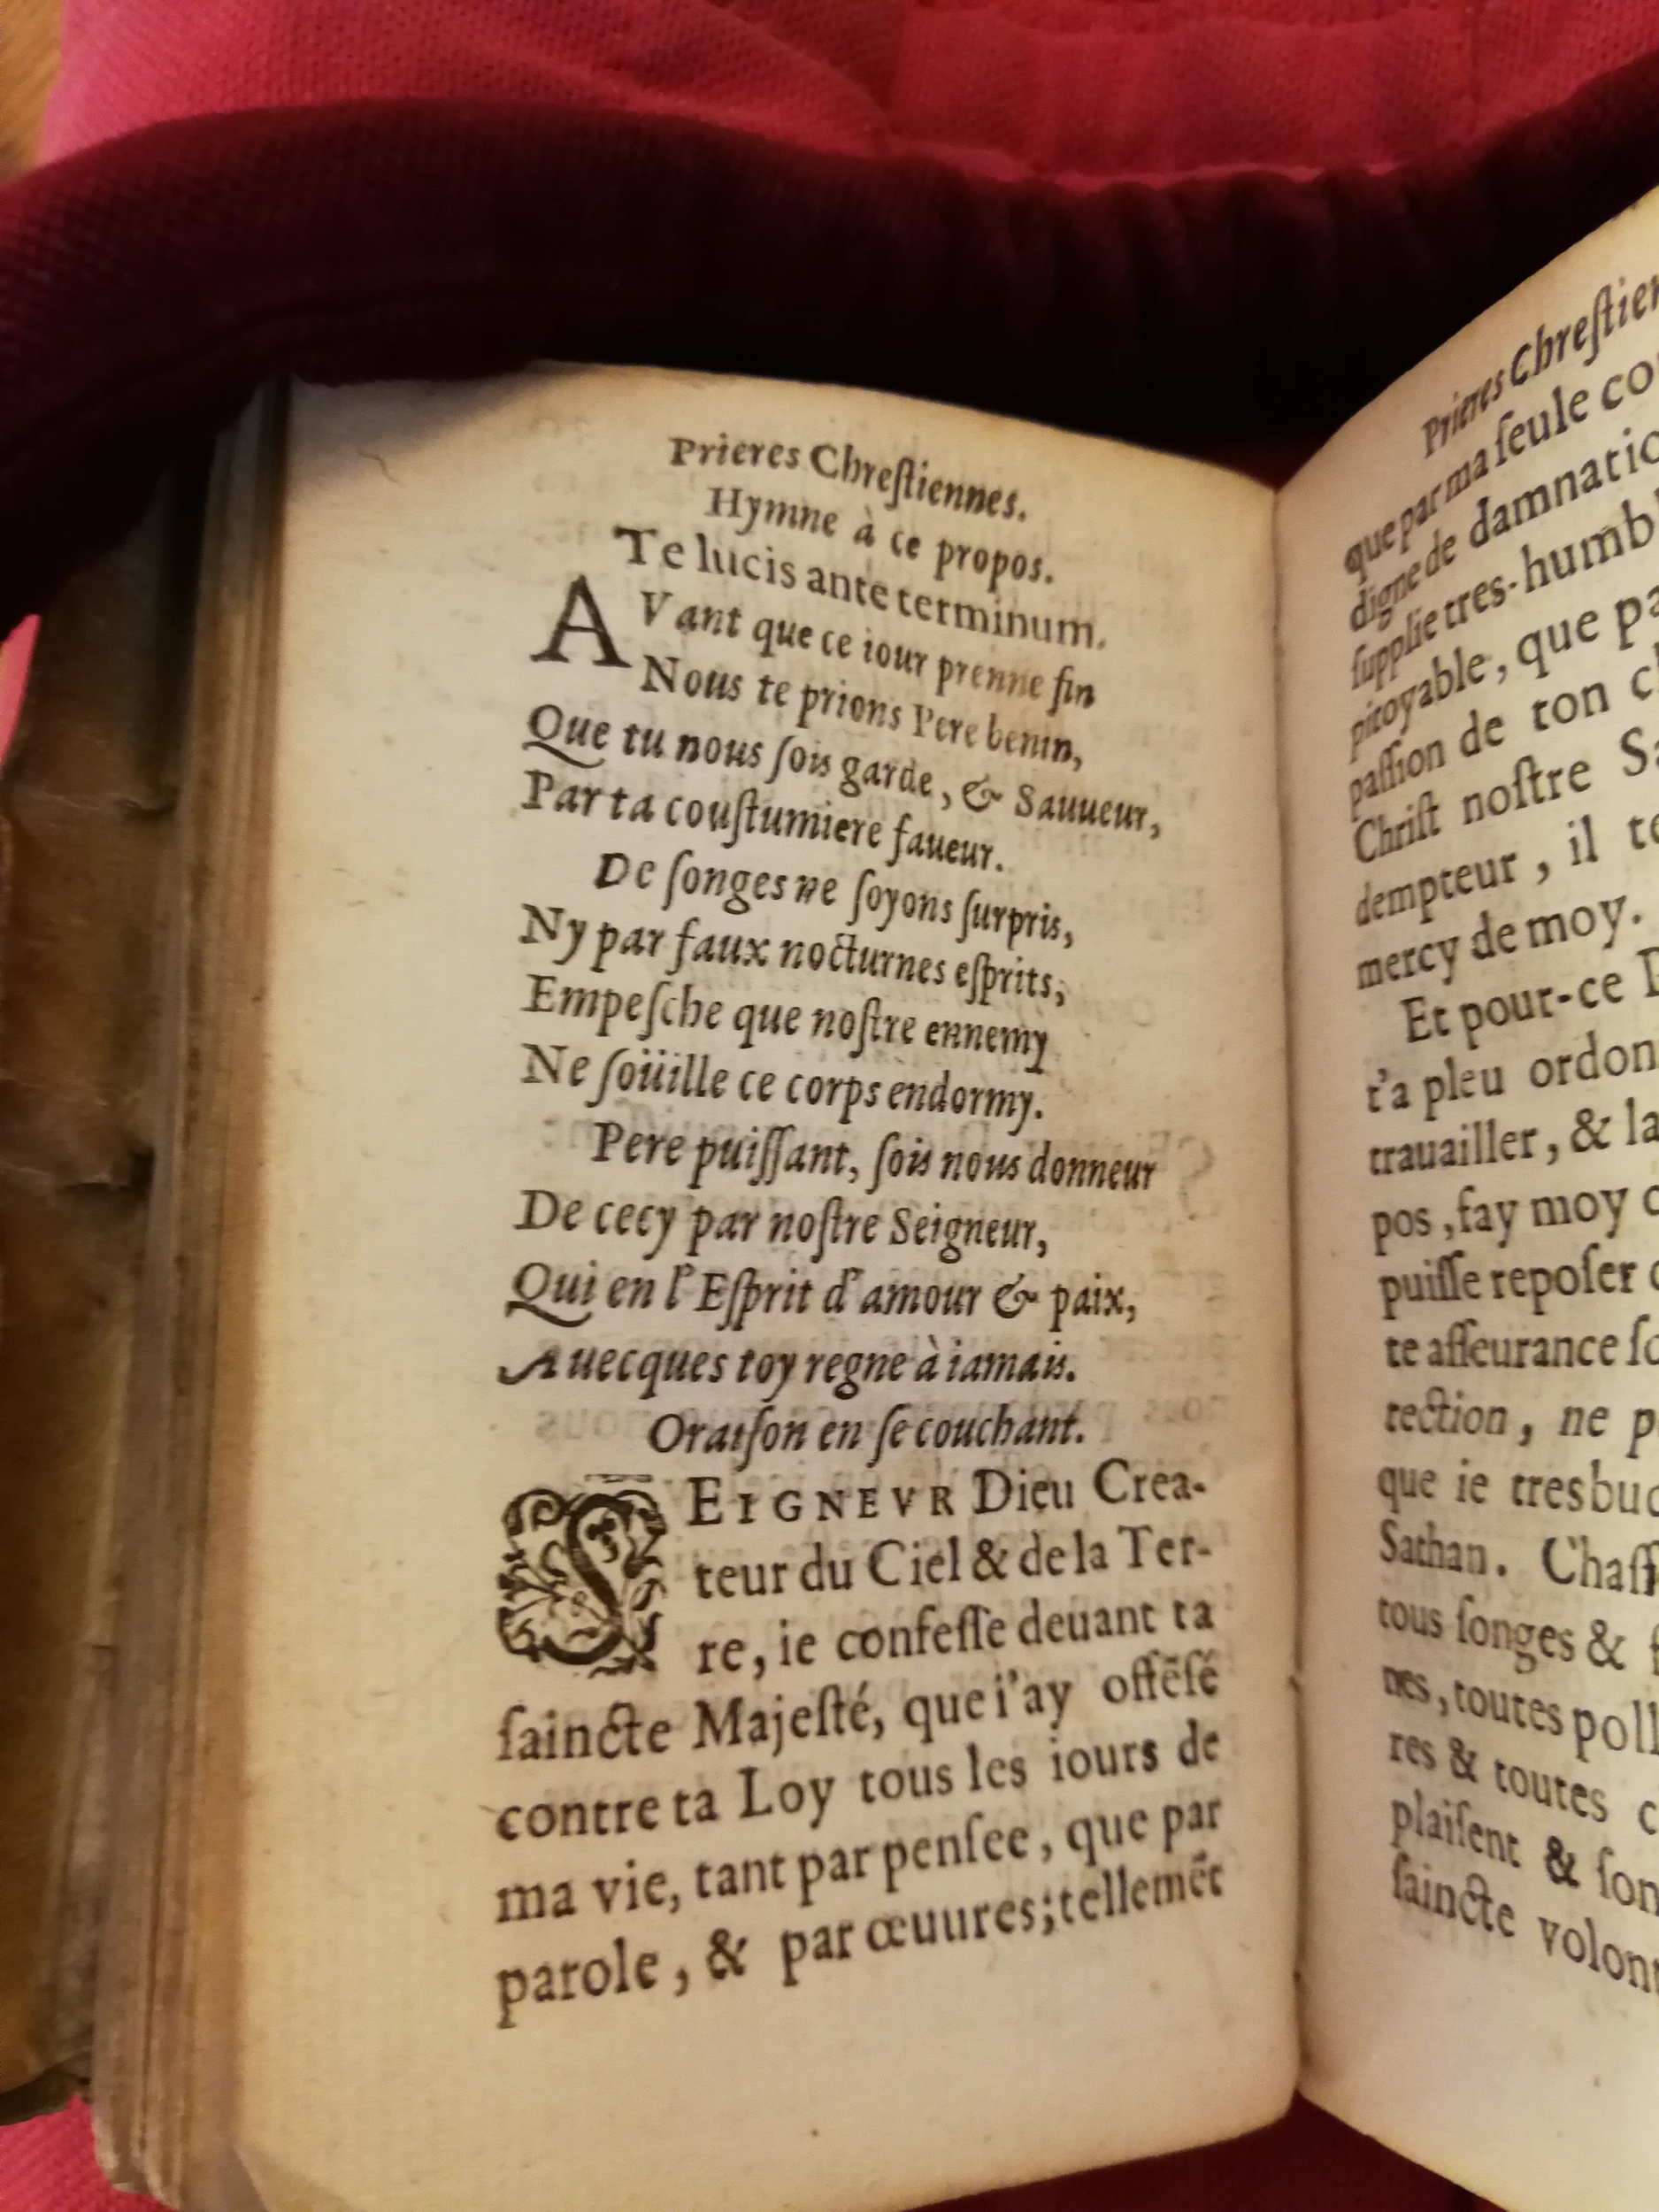 Prieres Chreſtiennes.
Hymne à ce propos.
Te lucis ante terminum.
AVant que ce iour prenne fin
Nous te prions Pere benin,
Que tu nous ſois garde, & Sauueur,
Par ta couſtumiere faueur.
De ſonges ne ſoyons ſurpris,
Ny par faux nocturnes eſprits,
Empeſche que noſtre ennemy
Ne ſoüille ce corps endormy.
Pere puiſſant, ſois nous donneur
De cecy par noſtre Seigneur,
Qui en l'Eſprit d'amour & paix,
Auecques toy regne à iamais.
Oraiſon en ſe couchant.
SEIGNEVR Dieu Crea-
teur du Ciel & de la Ter-
re, ie confeſſe deuant ta
ſaincte Majeſté, que i'ay offẽſé
contre ta Loy tous les iours de
ma vie, tant par penſee, que par
parole, & par œuures; tellemẽt
Prieres Chreſtien
que par ma ſeule
digne de damnatio
ſupplie tres-humbl
pitoyable, que
paſſion de ton
Chriſt noſtre
dempteur, il
mercy de moy.
Et pour-ce
t'a pleu ordon
trauailler, & la
pos, fay moy
puiſſe repoſer
te aſſeurance
rection, ne
que ie tresbuc
Sathan. Chaſſ
tous ſonges &
nes, toutes poll
res & toutes
plaiſent & ſon
ſaincte volon